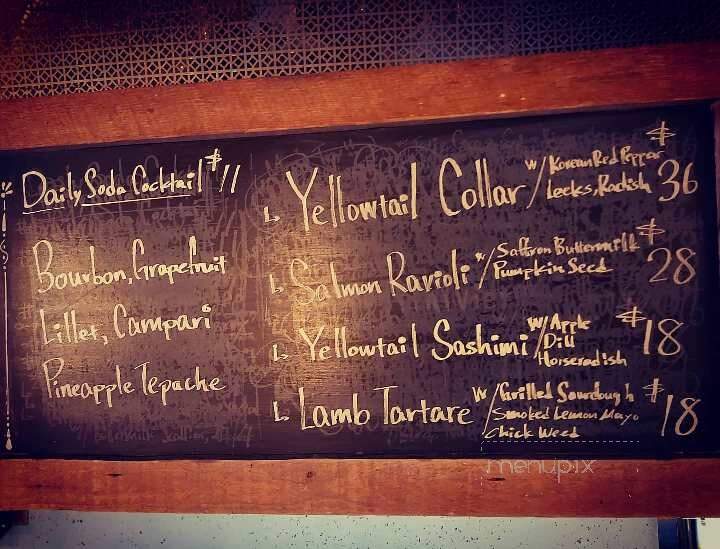 Daily Soda Cocktail $11
Bourbon, Grapefruit
Lillet, Campari
Pineapple Tepache
Yellowtail Collar w/ Korean Red Pepper
Leeks, Radish $36
Salmon Ravioli w/ Saffron Buttermilk
Pumpkin Seed $28
Yellowtail Sashimi w/ Apple
Dill
Horseradish $18
Lamb Tartare w/ Grilled Sourdough
Smoked Lemon Mayo
Chick Weed $18
menupix